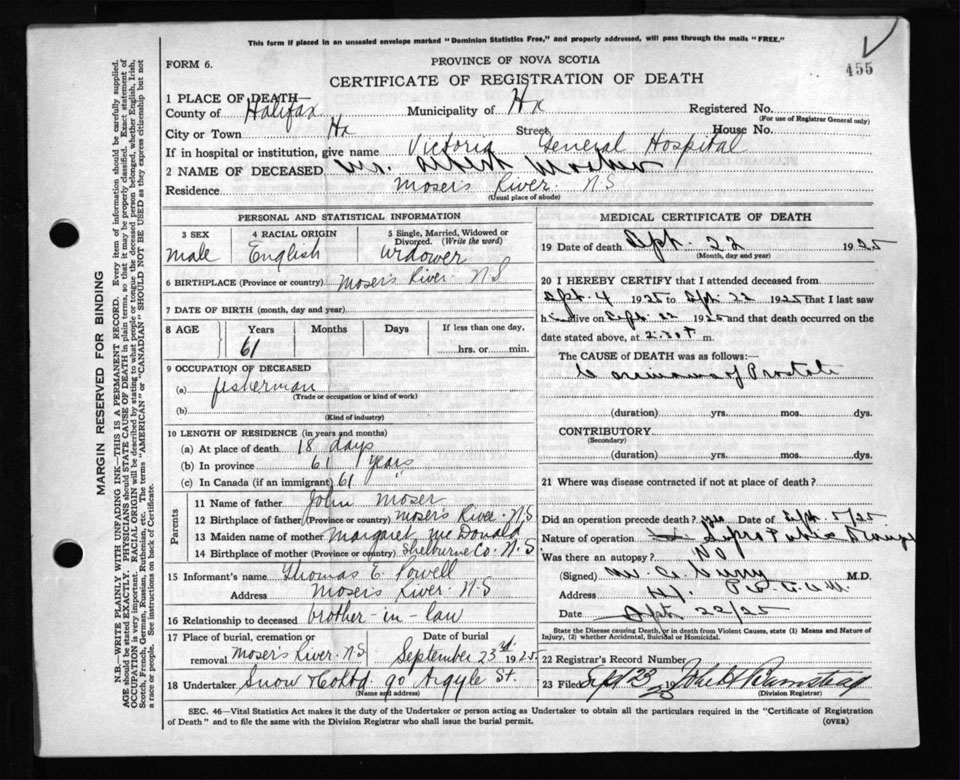 This form if placed in an unsealed envelope marked "Dominion Statistics Free," and properly addressed, will pass through the mails "FREE."
455
FORM 6.
PROVINCE OF NOVA SCOTIA
CERTIFICATE OF REGISTRATION OF DEATH
1 PLACE OF DEATH—
County of Halifax Municipality of Hx Registered No.
(For use of Registrar General only)
City or Town Hx Street House No.
If in hospital or institution, give name Victoria General Hospital
2 NAME OF DECEASED Mr. Albert
Residence Moser's River. N.S
(Usual place of abode)
PERSONAL AND STATISTICAL INFORMATION
3 SEX
male
4 RACIAL ORIGIN
English
5 Single, Married, Widowed or Divorced. (Write the word)
Widower
6 BIRTHPLACE (Province or country) Moser's River. N.S
7 DATE OF BIRTH (month, day and year)
8 AGE Years Months Days If less than one day,
61 hrs. or min.
9 OCCUPATION OF DECEASED
(a) fisherman
(Trade or occupation or kind of work)
(b)
(Kind of industry)
10 LENGTH OF RESIDENCE (in years and months)
(a) At place of death 18 days
(b) In province 61 years
(c) In Canada (if an immigrant) 61
Parents
11 Name of father John Moser
12 Birthplace of father (Province or country) Moser's River. N.S
13 Maiden name of mother Margaret McDonald
14 Birthplace of mother (Province or country) Shelburne Co. N.S
15 Informant's name Thomas E. Powell
Address Moser's River. N.S
16 Relationship to deceased brother-in-law
17 Place of burial, cremation or removal Moser's River. N.S
Date of burial
September 23rd 1925
18 Undertaker Snow & Co Ltd 90 Argyle St.
(Name and address)
MEDICAL CERTIFICATE OF DEATH
19 Date of death Sept. 22 1925
(Month, day and year)
20 I HEREBY CERTIFY that I attended deceased from
Sept. 4 1925 to Sept. 22 1925 that I last saw
him alive on Sept. 22 1925 and that death occurred on
date stated above, at 2:30 m.
The CAUSE OF DEATH was as follows:
Carcinoma of Prostate
(duration) yrs. mos. dys.
CONTRIBUTORY
(Secondary)
(duration) yrs. mos. dys.
21 Where was disease contracted if not at place of death?
Did an operation precede death? yes Date of Sept. 5/25
Nature of operation Supra Pubic
Was there an autopsy? No
(Signed) M.D.
Address Hx.
Date Sept. 22/25
State the Disease causing Death, or in death from Violent Causes, state (1) Means and Nature of Injury, (2) whether Accidental, Suicidal or Homicidal.
22 Registrar's Record Number
23 Filed Sept 23 1925 John H
(Division Registrar)
SEC. 46—Vital Statistics Act makes it the duty of the Undertaker or person acting as Undertaker to obtain all the particulars required in the "Certificate of Registration
of Death" and to file the same with the Division Registrar who shall issue the burial permit.
(OVER)
MARGIN RESERVED FOR BINDING
N.B.—WRITE PLAINLY WITH UNFADING INK—THIS IS A PERMANENT RECORD. Every item of information should be carefully supplied.
AGE should be stated EXACTLY. PHYSICIANS should STATE CAUSE OF DEATH in plain terms, so that it may be properly classified. Exact statement of
OCCUPATION is very important. RACIAL ORIGIN will be described by stating to what people or tongue the deceased person belonged, whether English, Irish,
Scotch, French, German, Russian, Ruthenian, etc. The terms "AMERICAN" or "CANADIAN" SHOULD NOT BE USED as they express citizenship but not
a race or people. See instructions on back of Certificate.